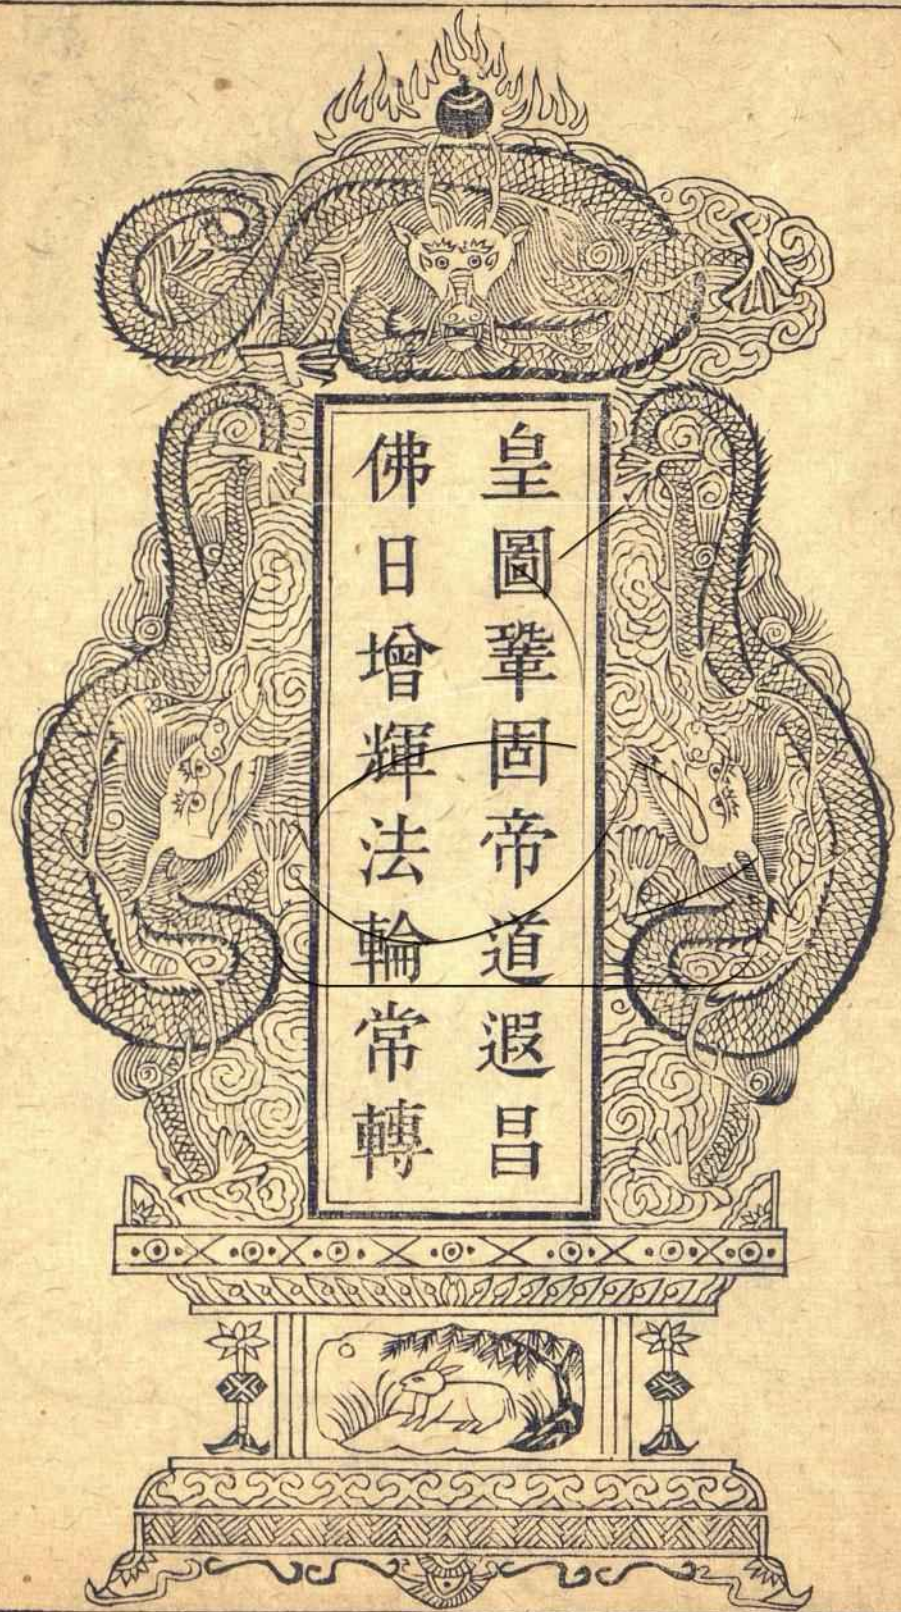 皇圖鞏固帝道遐昌
佛日增輝法輪常轉